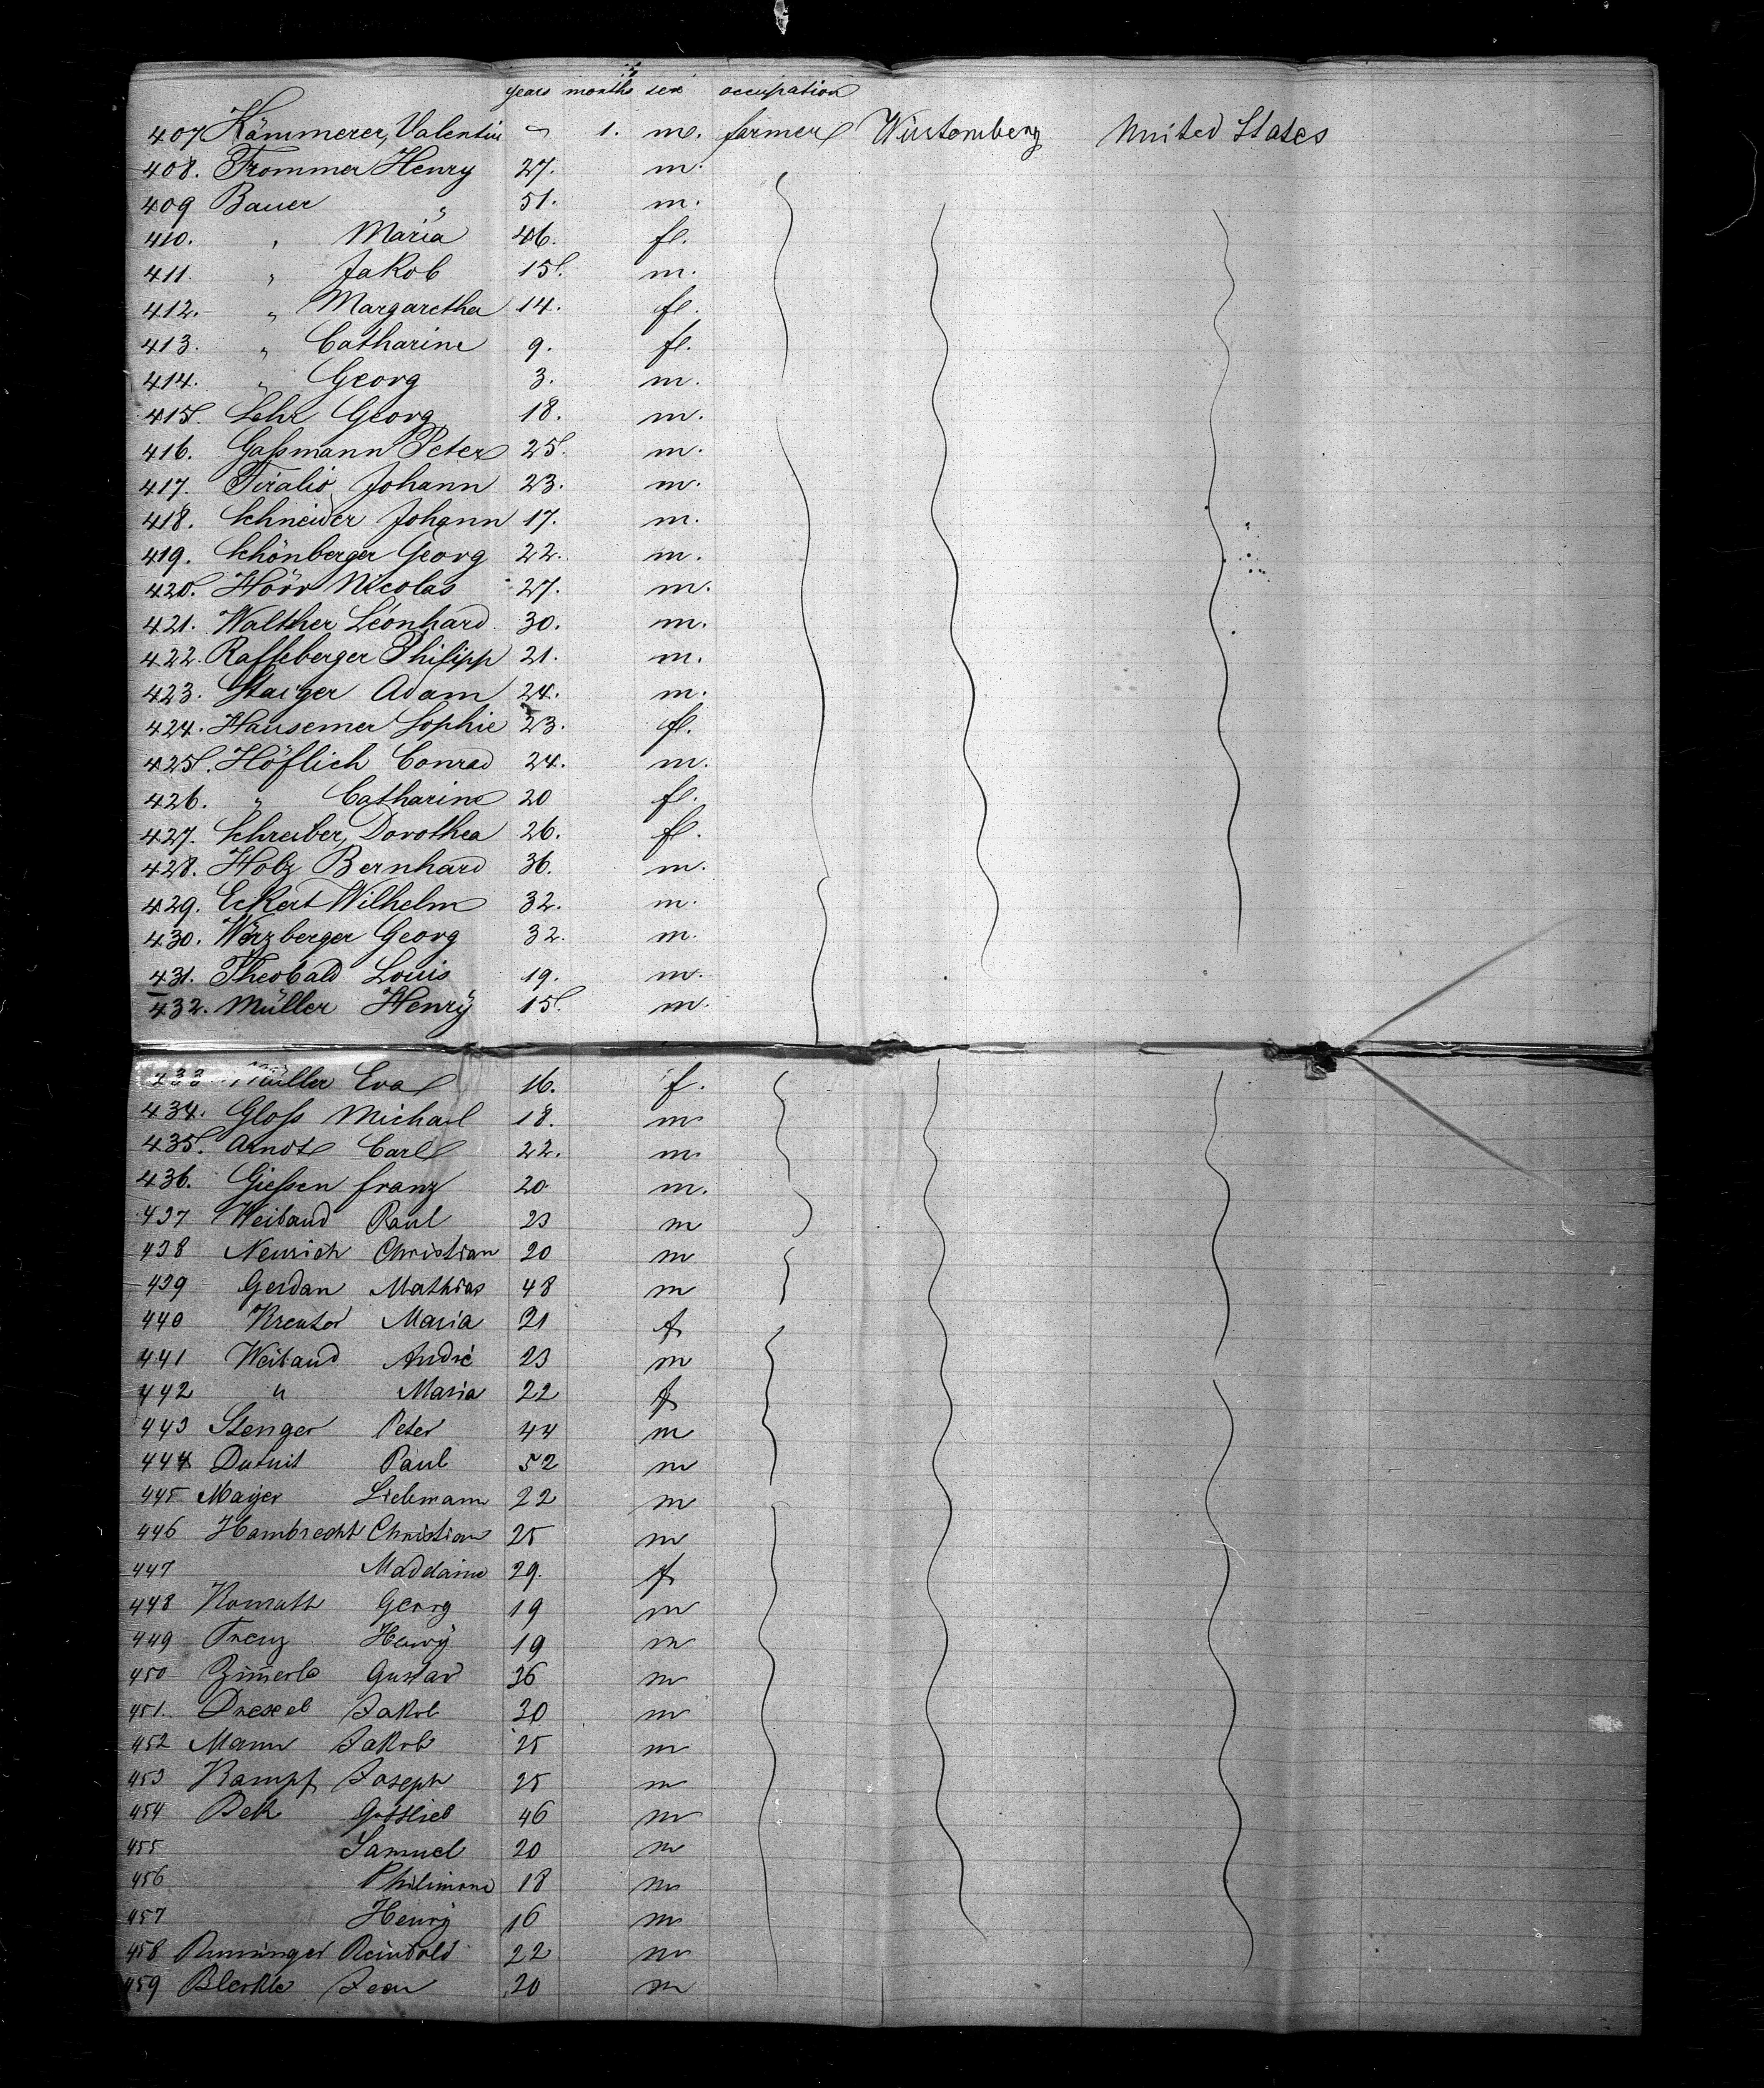 years months sex occupation
407 Kämmerer, Valentin " 1. m. farmer Würtemberg United States
408. Frommer Henry 27. m.
409 Bauer " 51. m.
410. " Maria 46. fl.
411. " Jakob 15. m.
412. " Margaretha 14. fl.
413. " Catharine 9. fl.
414. " Georg 3. m.
415. Lehr Georg 18. m.
416. Gaßmann Peter 25. m.
417. Tiralio Johann 23. m.
418. Schneider Johann 17. m.
419. Schönberger Georg 22. m.
420. Hörr Nicolas 27. m.
421. Walther Léonhard 30. m.
422. Raffeberger Philipp 21. m.
423. Staiger Adam 24. m.
424. Hausemer Sophie 23. fl.
425. Höflich Conrad 24. m.
426. " Catharine 20 fl.
427. Schreiber, Dorothea 26. fl.
428. Holz Bernhard 36. m.
429. Eckert Wilhelm 32. m.
430. Würzberger Georg 32. m.
431. Theobald Louis 19. m.
432. Müller Henry 15. m.
433 Müller Eva 16. f.
434. Gloß Michael 18. m
435. Arndt Carl 22. m
436. Gießen franz 20 m.
437 Weiband Paul 23 m
438 Neurich Christian 20 m
439 Gerdan Mathias 48 m
440 Kreuter Maria 21 f
441 Weiband André 23 m
442 " Maria 22 f
443 Stenger Peter 44 m
444 Dutuit Paul 52 m
445 Mayer Liebmann 22 m
446 Hambrecht Christian 25 m
447 Madelaine 29. f
448 Georg 19 m
449 Frenz Henry 19 m
450 Zimerle Gustav 36 m
451. Drexel Jakob 30 m
452 Mann Jakob 25 m
453 Kampf Joseph 25 m
454 Bek Gottlieb 46 m
455 Samuel 20 m
456 Philimone 18 m
457 Henry 16 m
458 Reinbold 22 m
459 Blerkle Jean 20 m